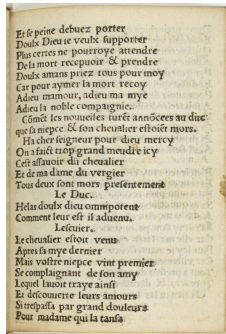 Et se peine debuez porter
Doulx Dieu ie veulx supporter
Plus certes ne pourroye attendre
De la mort recepuoir & prendre
Doulx amans priez tous pour moy
Car pour aymer la mort recoy
Adieu mamour, adieu ma mye
Adieu la noble compaignie.
Cōmēt les nouuelles furēt annōcees au duc
que sa niepce & son cheualier estoiēt mors.
Ha cher seigneur pour dieu mercy
On a faict trop grand meudre icy
Cest assauoir du cheualier
Et de ma dame du vergier
Tous deux sont mors presentement
Le Duc.
Helas doulx dieu omnipotent
Comment leur est il aduenu.
Lescuier.
Le cheualier estoit venu
Apres sa mye dernier
Mais vostre niepce vint premier
Se complaignant de son amy
Lequel lauoit traye ainsi
Et descouuerte leurs amours
Si trespassa par grand douleurs
Pour madame qui la tansa